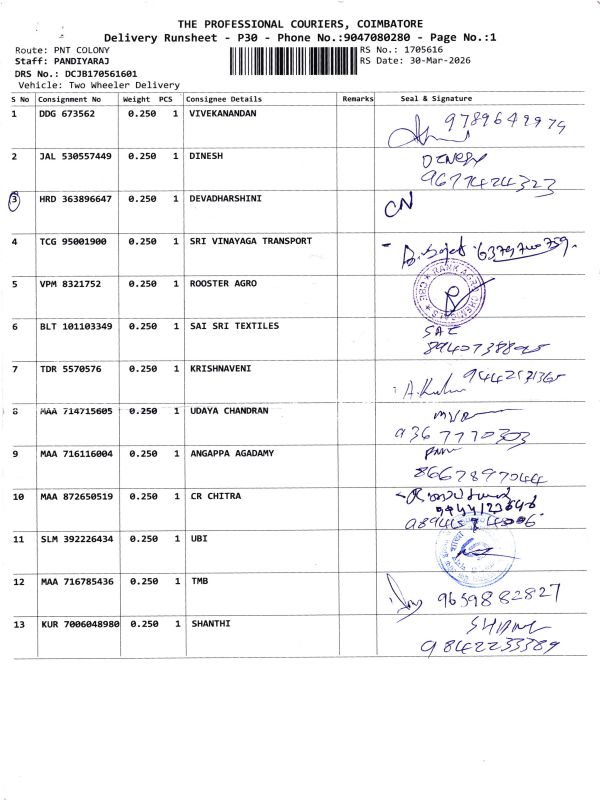 THE PROFESSIONAL COURIERS, COIMBATORE
Delivery Runsheet - P30 - Phone No.:9047080280 - Page No.:1
Route: PNT COLONY RS No.: 1705616
Staff: PANDIYARAJ RS Date: 30-Mar-2026
DRS No.: DCJB170561601
Vehicle: Two Wheeler Delivery
S No Consignment No Weight PCS Consignee Details Remarks Seal & Signature
1 DDG 673562 0.250 1 VIVEKANANDAN 9789649979
2 JAL 530557449 0.250 1 DINESH DINESH
9677424323
3 HRD 363896647 0.250 1 DEVADHARSHINI CN
4 TCG 95001900 0.250 1 SRI VINAYAGA TRANSPORT
5 VPM 8321752 0.250 1 ROOSTER AGRO
6 BLT 101103349 0.250 1 SAI SRI TEXTILES SAI
7 TDR 5570576 0.250 1 KRISHNAVENI
8 MAA 714715605 0.250 1 UDAYA CHANDRAN
9367770303
9 MAA 716116004 0.250 1 ANGAPPA AGADAMY
8667897044
10 MAA 872650519 0.250 1 CR CHITRA
11 SLM 392226434 0.250 1 UBI
12 MAA 716785436 0.250 1 TMB 9659882827
13 KUR 7006048980 0.250 1 SHANTHI
9842233389